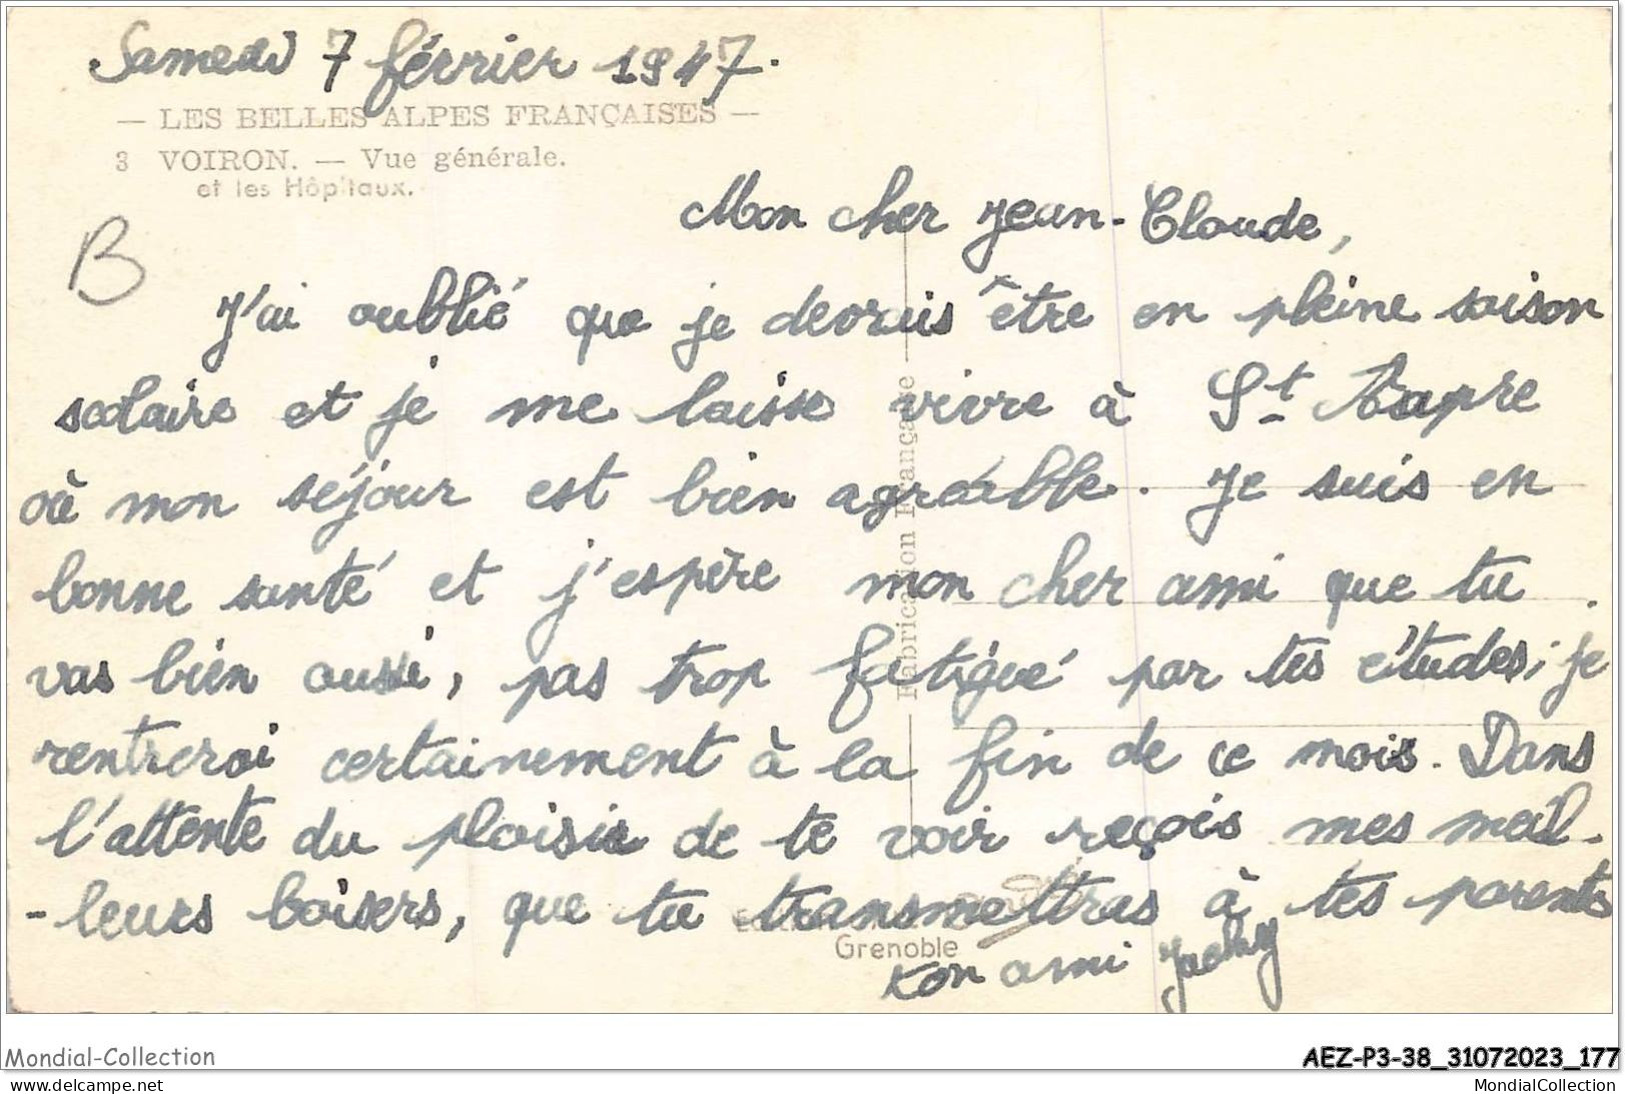 Samedi 7 février 1947.
— LES BELLES ALPES FRANÇAISES —
3 VOIRON. — Vue générale.
et les Hôpitaux.
B
Mon cher Jean-Claude,
J'ai oublié que je devrais être en pleine saison
scolaire et je me laisse vivre à St Aupre
où mon séjour est bien agréable. Je suis en
bonne santé et j'espère mon cher ami que tu
vas bien aussi, pas trop fatigué par tes études; je
rentrerai certainement à la fin de ce mois. Dans
l'attente du plaisir de te voir reçois mes meil-
-leurs baisers, que tu transmettras à tes parents
Ton ami Jacky
Fabrication Française
Grenoble
Mondial-Collection
AEZ-P3-38_31072023_177
www.delcampe.net
MondialCollection